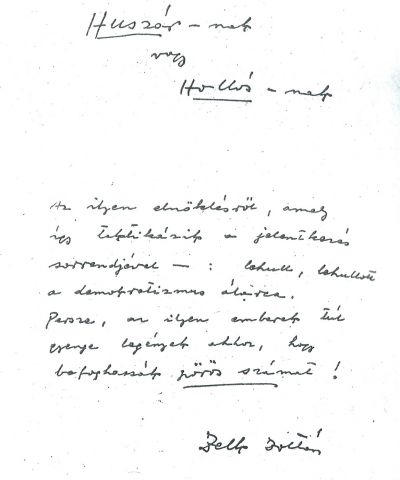 Huszár-nak
vagy
Hollós-nak
Az ilyen elnöklésről, amely
így taktikázik a jelentkezés
sorrendjével — : lehull, lehullott
a demokratizmus álarca.
Persze, az ilyen emberek túl
gyenge legények ahhoz, hogy
befoghassák pörös számat!
Zelk Zoltán